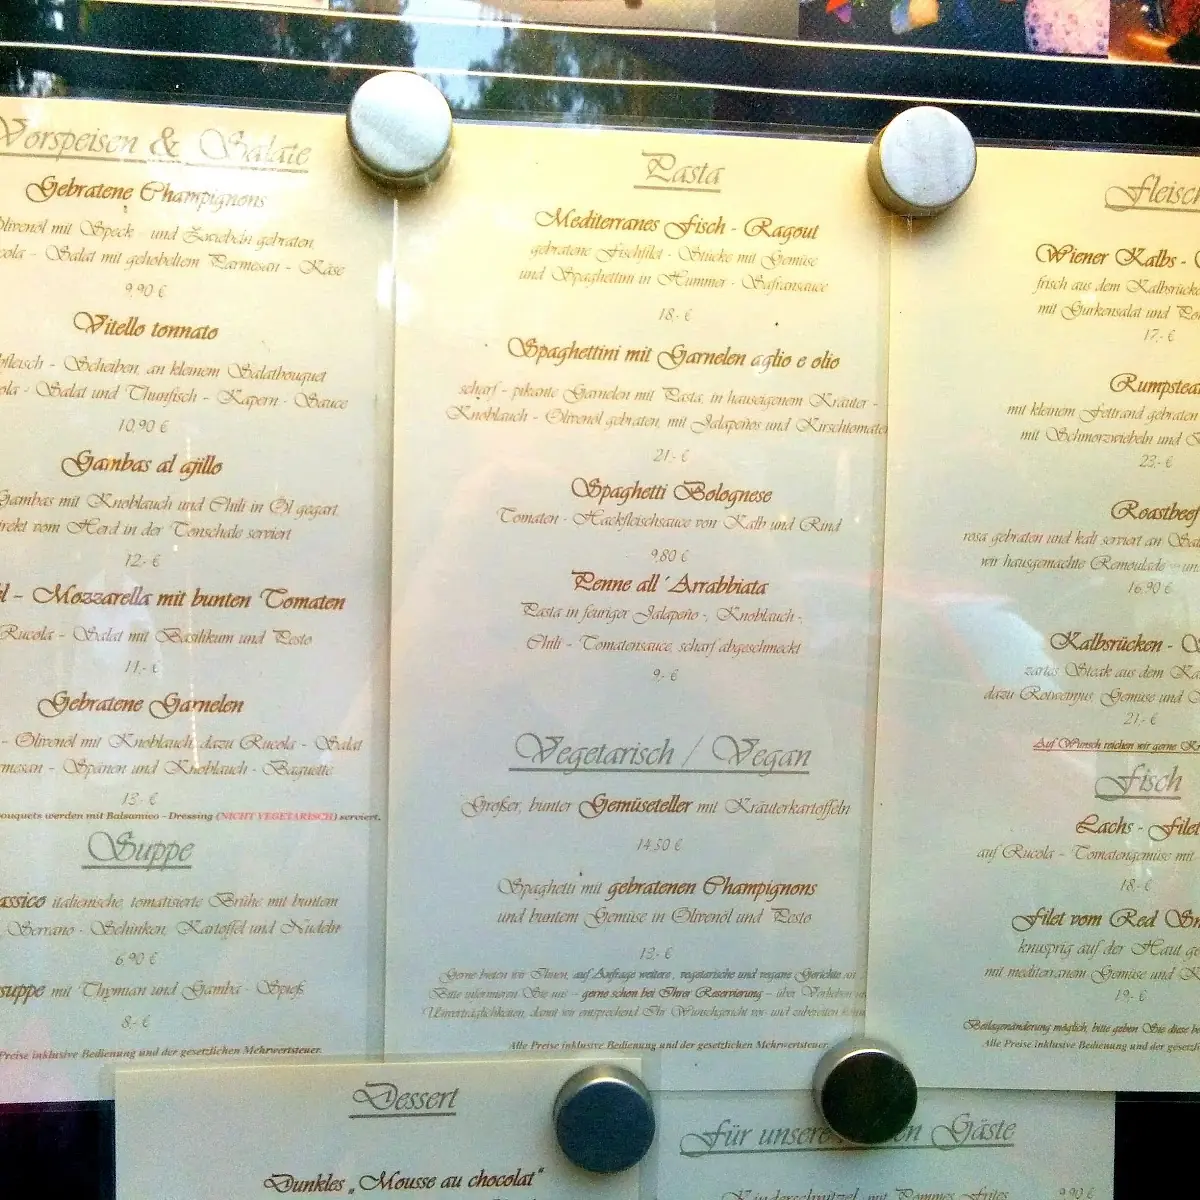 Vorspeisen & Salate
Gebratene Champignons
Olivenöl mit Speck - und Zwiebeln gebraten,
Salat mit gehobeltem Parmesan - Käse
9,90 €
Vitello tonnato
Scheiben, an kleinem Salatbouquet
Salat und Thunfisch - Kapern - Sauce
10,90 €
Gambas al ajillo
Gambas mit Knoblauch und Chili in Öl gegart,
vom Herd in der Tonschale serviert
12,- €
- Mozzarella mit bunten Tomaten
Rucola - Salat mit Basilikum und Pesto
11,- €
Gebratene Garnelen
- Olivenöl mit Knoblauch, dazu Rucola - Salat
Spänen und Knoblauch - Baguette
13,- €
werden mit Balsamico - Dressing (NICHT VEGETARISCH) serviert.
Suppe
italienische, tomatisierte Brühe mit buntem
Serrano - Schinken, Kartoffel und Nudeln
6,90 €
suppe mit Thymian und Gamba - Spieß
8,- €
Preise inklusive Bedienung und der gesetzlichen Mehrwertsteuer.
Pasta
Mediterranes Fisch - Ragout
gebratene Fischfilet - Stücke mit Gemüse
und Spaghettini in Hummer - Safransauce
18,- €
Spaghettini mit Garnelen aglio e olio
scharf - pikante Garnelen mit Pasta, in hauseigenem Kräuter -
Knoblauch - Olivenöl gebraten, mit Jalapeños und Kirschtomaten
21,- €
Spaghetti Bolognese
Tomaten - Hackfleischsauce von Kalb und Rind
9,80 €
Penne all´Arrabbiata
Pasta in feuriger Jalapeño -, Knoblauch -,
Chili - Tomatensauce, scharf abgeschmeckt
9,- €
Vegetarisch / Vegan
Großer, bunter Gemüseteller mit Kräuterkartoffeln
14,50 €
Spaghetti mit gebratenen Champignons
und buntem Gemüse in Olivenöl und Pesto
13,- €
Gerne bieten wir Ihnen, auf Anfrage weitere, vegetarische und vegane Gerichte an
Bitte informieren Sie uns - gerne schon bei Ihrer Reservierung - über Vorlieben
Unverträglichkeiten, damit wir entsprechend Ihr Wunschgericht vor- und zubereiten
Alle Preise inklusive Bedienung und der gesetzlichen Mehrwertsteuer.
Fleisch
Wiener Kalbs -
frisch aus dem Kalbsrücken
mit Gurkensalat und
17,- €
Rumpsteak
mit kleinem Fettrand gebraten
mit Schmorzwiebeln und
23,- €
Roastbeef
rosa gebraten und kalt serviert an
wir hausgemachte Remoulade
16,90 €
Kalbsrücken -
zartes Steak aus dem
dazu Rotweinjus, Gemüse und
21,- €
Auf Wunsch reichen wir gerne
Fisch
Lachs - Filet
auf Rucola - Tomatengemüse mit
18,- €
Filet vom Red
knusprig auf der Haut
mit mediterranem Gemüse und
19,- €
Beilagenänderung möglich, bitte geben Sie diese
Alle Preise inklusive Bedienung und der
Dessert
Dunkles „Mousse au chocolat"
Für unsere Gäste
Kinderschnitzel mit Pommes Frites 9,90 €